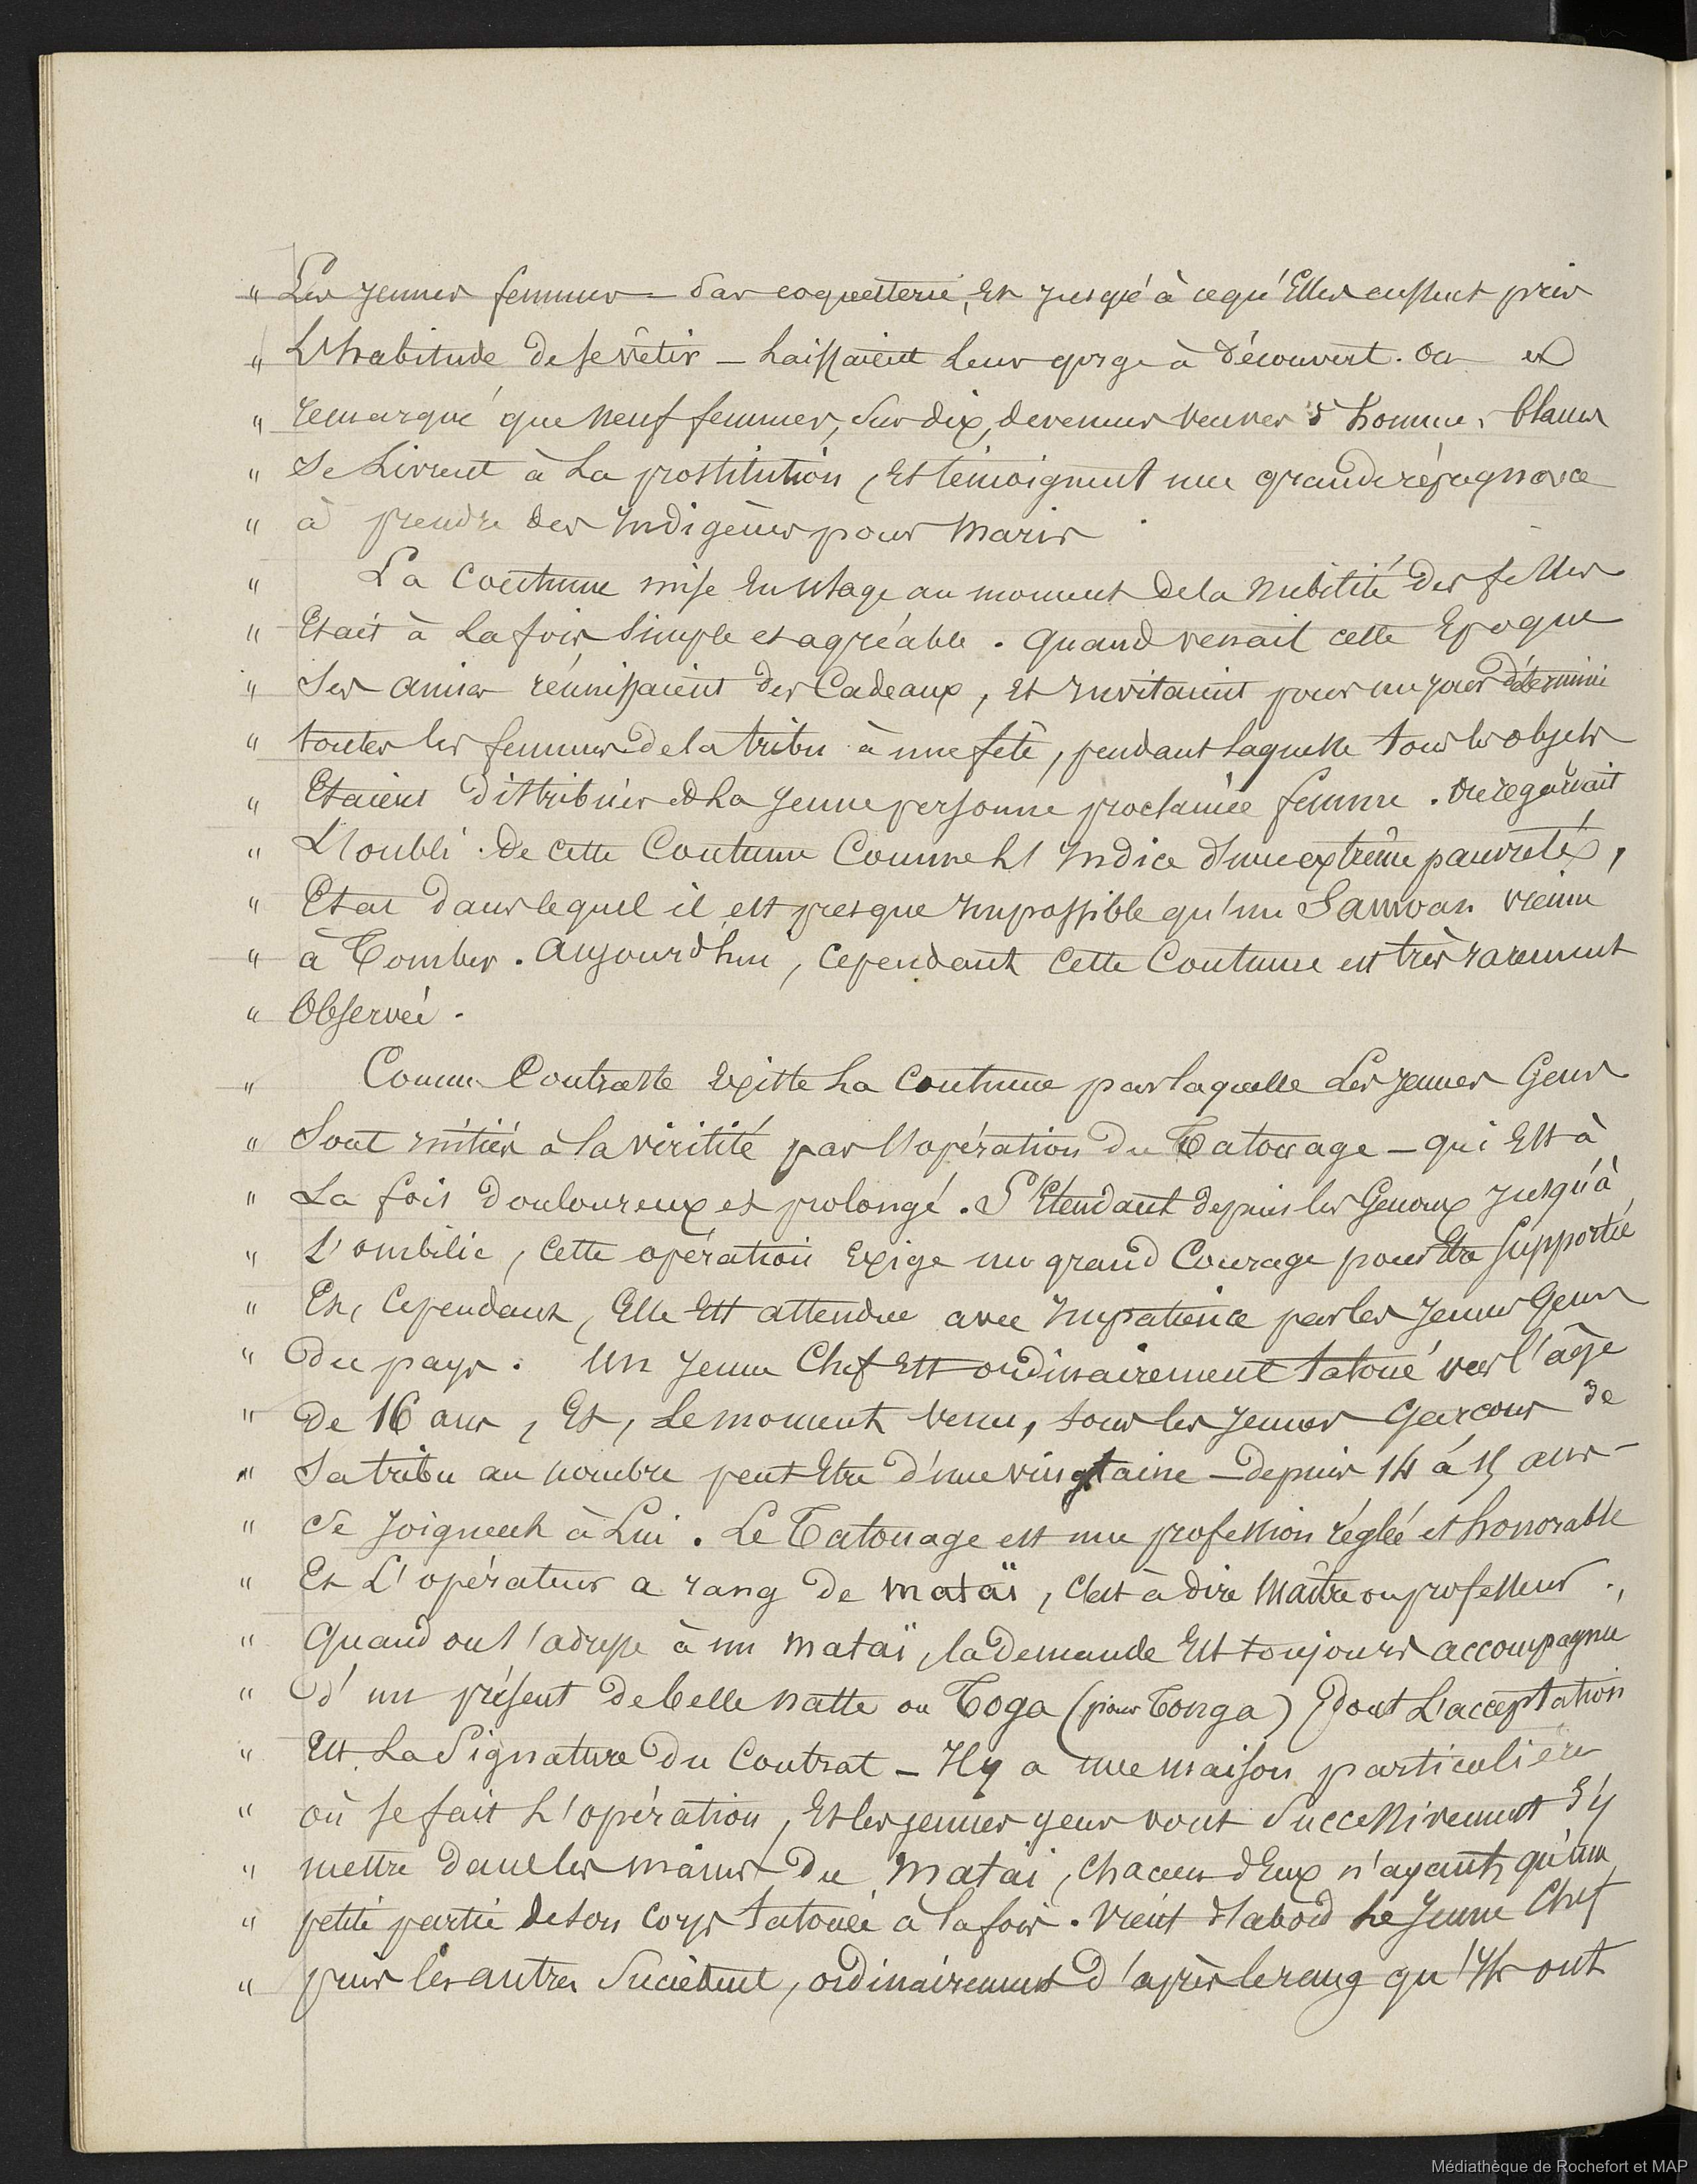 " Les jeunes femmes - par coquetterie, Et jusqu'à ce qu'Elles eussent pris
" L'habitude de se vêtir - Laissaient leur gorge à découvert. On a
" remarqué que neuf femmes, sur dix, devenues veuves d'hommes blancs
" Se Livrent à La prostitution, Et témoignent une grande répugnance
" à prendre des Indigènes pour Maris
" La Coutume mise En usage au moment de la nubilité des filles
" Etait à La fois Simple et agréable. quand venait cette Epoque
" Ses amies réunissaient des Cadeaux, Et Invitaient pour un jour déterminé
" toutes les femmes de la tribu à une fête, pendant Laquelle tous les objets
" Etaient distribués et La Jeune personne proclamée femme. On regardait
" L'oubli de cette Coutume Comme L'Indice d'une extrême pauvreté,
" Etat dans lequel il est presque Impossible qu'un Samoan vienne
" à Tomber. Aujourd'hui, Cependant Cette Coutume est très rarement
" Observée.
" Comme Contraste Existe La Coutume par laquelle Les Jeunes Gens
" Sont initiés à La virilité par L'opération du Tatouage - qui Est à
" La fois douloureux et prolongé. S'Etendant depuis les Genoux Jusqu'à
" L'ombilic, Cette opération Exige un grand Courage pour Etre Supportée
" Et, Cependant, Elle Est attendue avec Impatience par les Jeunes Gens
" du pays. Un Jeune Chef Est ordinairement tatoué vers l'âge
" de 16 ans, Et, Le moment venu, tous les Jeunes Garçons de
" Sa tribu au nombre peut Etre d'une vingtaine - depuis 14 à 15 ans -
" Se Joignent à Lui. Le Tatouage est une profession réglée et honorable
" Et L'opérateur a rang de mataï, C'est à dire Maître ou professeur.,
" Quand on s'adresse à un mataï, la demande Est toujours accompagnée
" d'un présent de belle natte ou Toga (pour Tonga) dont L'acceptation
" Est La Signature du Contrat - Il y a une maison particulière
" où se fait L'opération, Et les jeunes gens vont Successivement S'y
" mettre dans les mains du Mataï, Chacun d'Eux n'ayant qu'une
" petite partie de son Corps tatouée à la fois. Vient d'abord Le Jeune Chef
" puis les autres Succèdent, ordinairement d'après le rang qu'Ils ont
Médiathèque de Rochefort et MAP